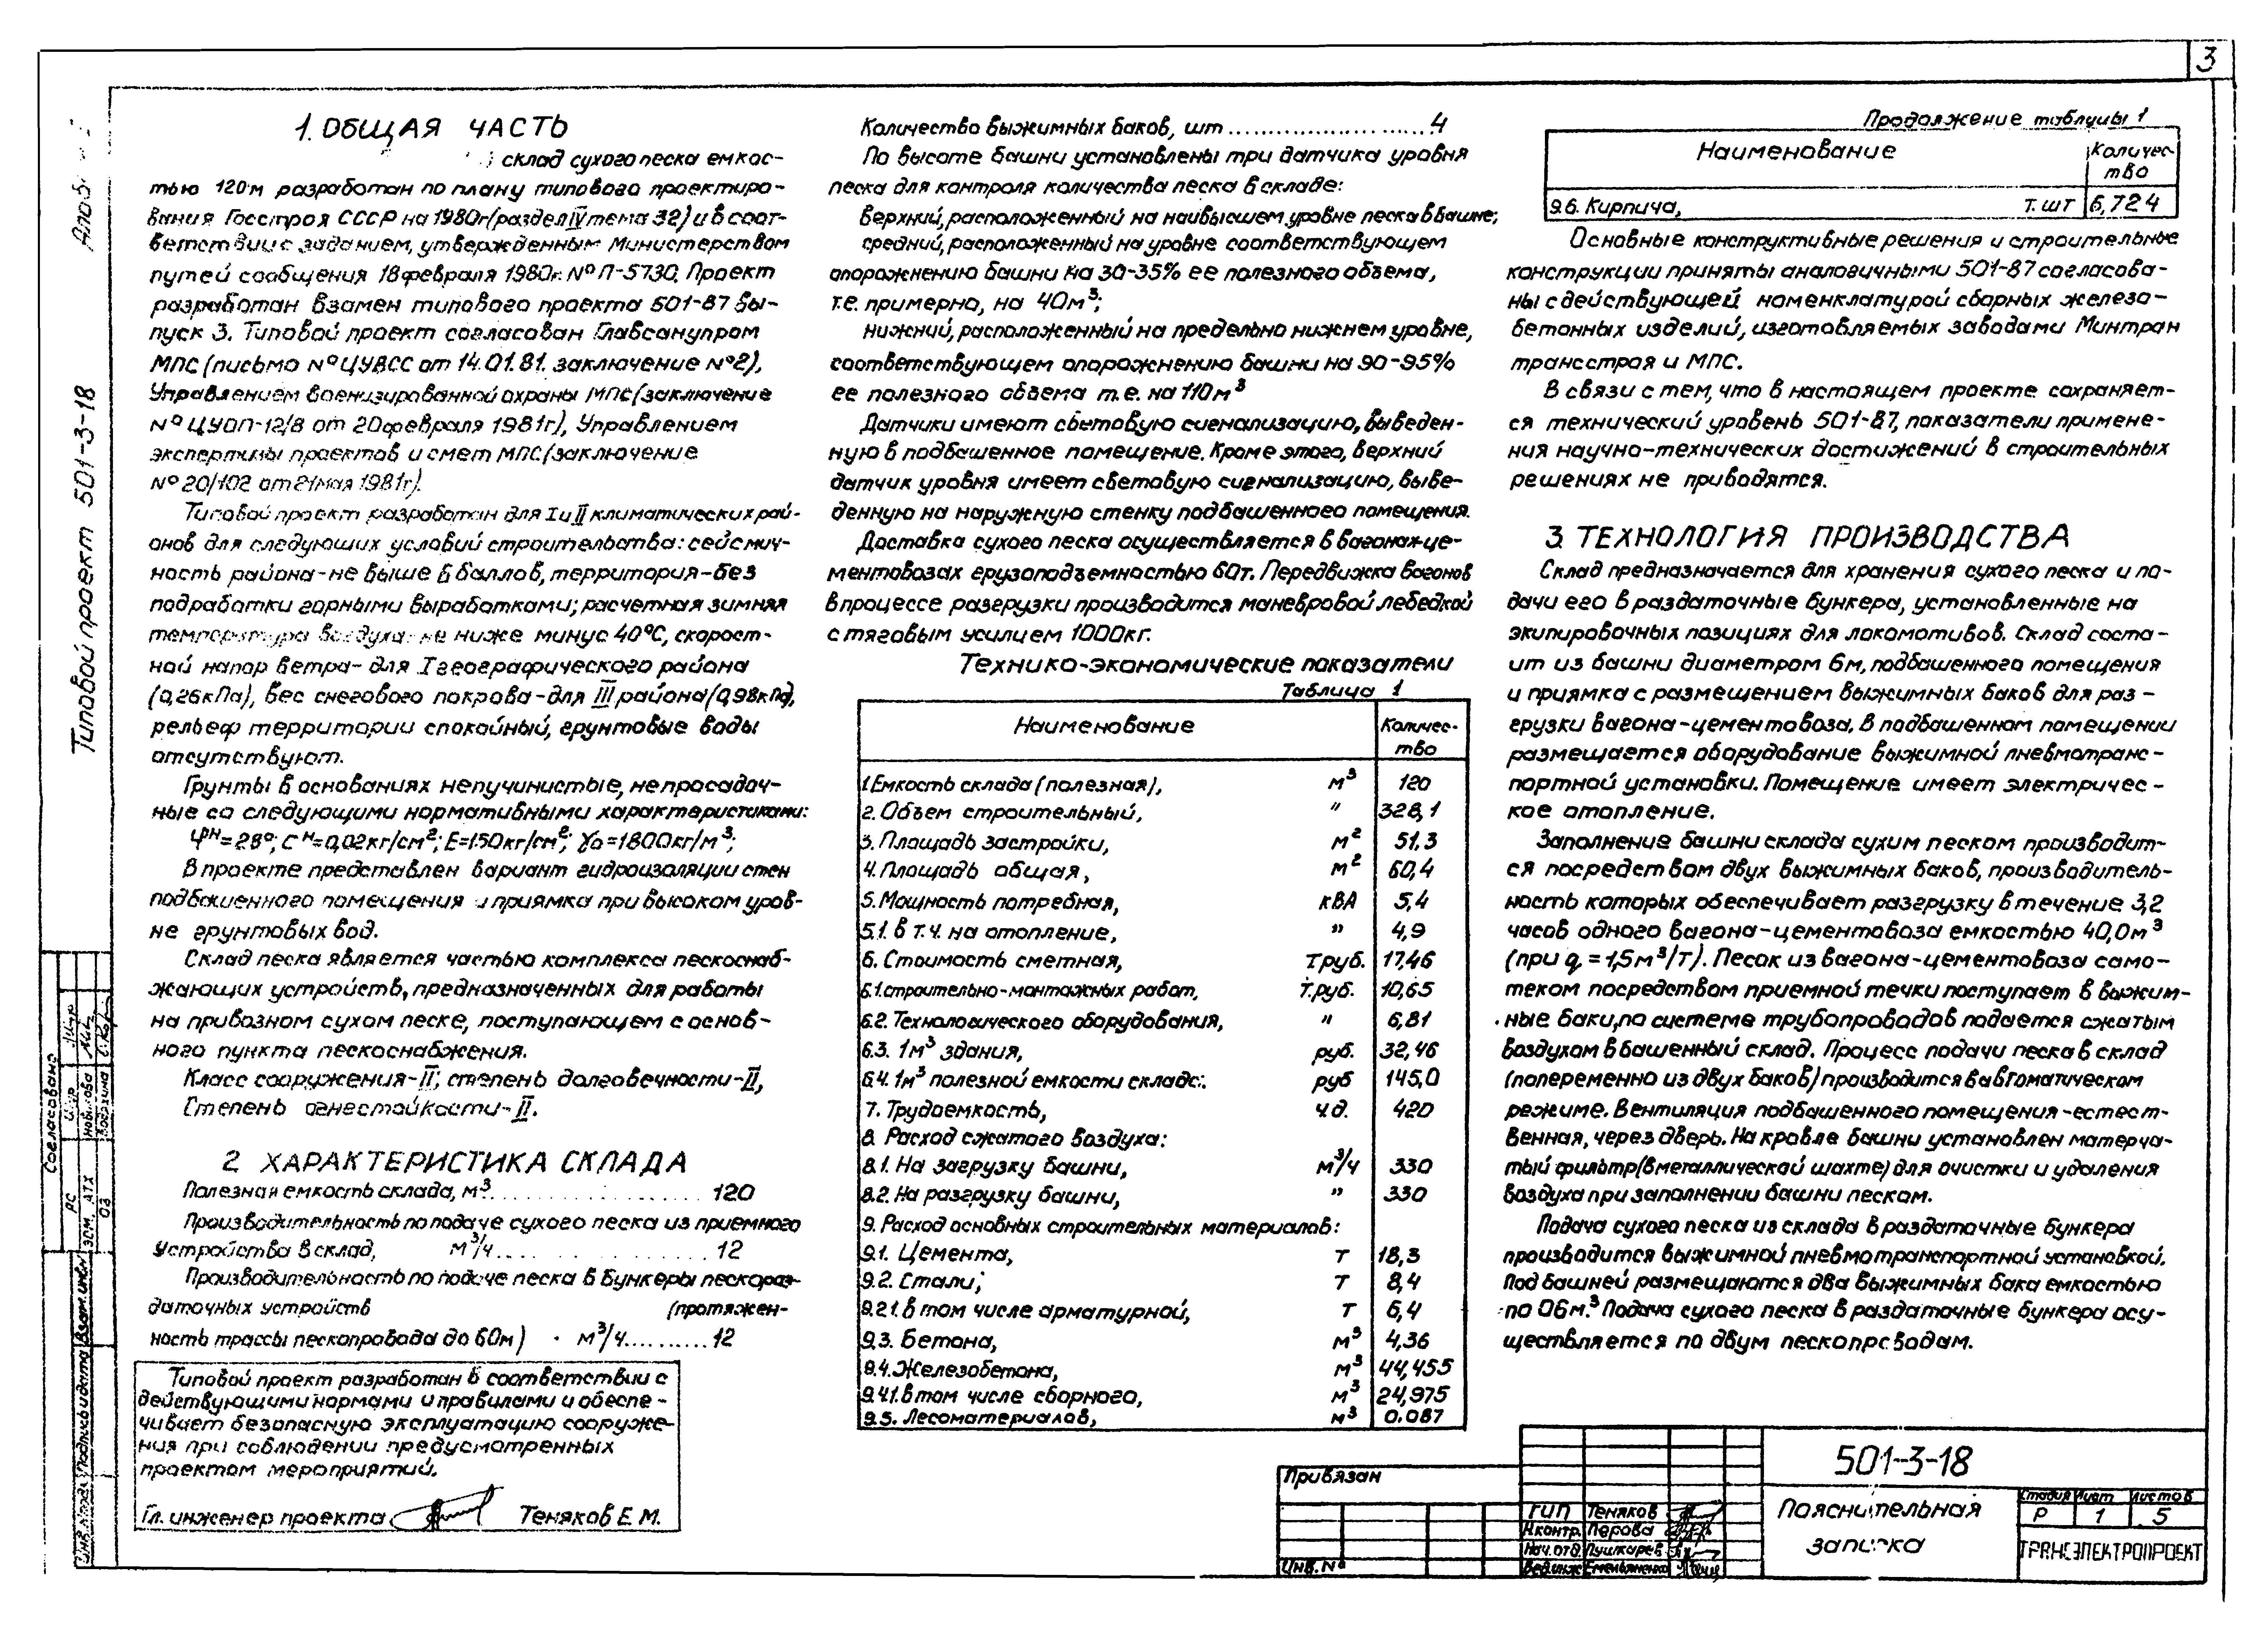 3
Типовой проект 501-3-18
1. ОБЩАЯ ЧАСТЬ
склад сухого песка емкос-
тью 120м разработан по плану типового проектиро-
вания Госстроя СССР на 1980г (раздел IV тема 32) и в соот-
ветствии с заданием, утвержденным Министерством
путей сообщения 18 февраля 1980г. № П-5730. Проект
разработан взамен типового проекта 501-87 вы-
пуск 3. Типовой проект согласован Главсанупром
МПС (письмо № ЦУВСС от 14.01.81. заключение №2),
Управлением военизированной охраны МПС (заключение
№ ЦУОП-12/8 от 20 февраля 1981г), Управлением
экспертизы проектов и смет МПС (заключение
№ 20/102 от 21 мая 1981г).
Типовой проект разработан для I и II климатических рай-
онов для следующих условий строительства: сейсмич-
ность района-не выше 6 баллов, территория-без
подработки горными выработками; расчетная зимняя
температура воздуха-не ниже минус 40°С, скорост-
ной напор ветра-для I географического района
(0,26кПа), вес снегового покрова-для III района (0,98кПа),
рельеф территории спокойный, грунтовые воды
отсутствуют.
Грунты в основаниях непучинистые, непросадоч-
ные со следующими нормативными характеристиками:
φн=28°; Сн=0,02кг/см²; Е=150кг/см²; γо=1800кг/м³;
В проекте представлен вариант гидроизоляции стен
подбашенного помещения и приямка при высоком уров-
не грунтовых вод.
Склад песка является частью комплекса пескоснаб-
жающих устройств, предназначенных для работы
на привозном сухом песке, поступающем с основ-
ного пункта пескоснабжения.
Класс сооружения-II; степень долговечности-II,
Степень огнестойкости-II.
2 ХАРАКТЕРИСТИКА СКЛАДА
Полезная емкость склада, м³ 120
Производительность по подаче сухого песка из приемного
устройства в склад, м³/ч 12
Производительность по подаче песка в бункеры пескораз-
даточных устройств (протяжен-
ность трассы пескопровода до 60м) м³/ч 12
Типовой проект разработан в соответствии с
действующими нормами и правилами и обеспе-
чивает безопасную эксплуатацию сооруже-
ния при соблюдении предусмотренных
проектом мероприятий.
Гл. инженер проекта Теняков Е.М.
Количество выжимных баков, шт 4
По высоте башни установлены три датчика уровня
песка для контроля количества песка в складе:
верхний, расположенный на наивысшем уровне песка в башне;
средний, расположенный на уровне соответствующем
опорожнению башни на 30-35% ее полезного объема,
т.е. примерно, на 40м³;
нижний, расположенный на предельно нижнем уровне,
соответствующем опорожнению башни на 90-95%
ее полезного объема т.е. на 110м³
Датчики имеют световую сигнализацию, выведен-
ную в подбашенное помещение. Кроме этого, верхний
датчик уровня имеет световую сигнализацию, выве-
денную на наружную стенку подбашенного помещения.
Доставка сухого песка осуществляется в вагонах-це-
ментовозах грузоподъемностью 60т. Передвижка вагонов
в процессе разгрузки производится маневровой лебедкой
с тяговым усилием 1000кг.
Технико-экономические показатели
Таблица 1
Наименование Количес-
тво
1. Емкость склада (полезная), м³ 120
2. Объем строительный, " 328,1
3. Площадь застройки, м² 51,3
4. Площадь общая, м² 60,4
5. Мощность потребная, кВА 5,4
5.1. в т.ч. на отопление, " 4,9
6. Стоимость сметная, т.руб. 17,46
6.1. строительно-монтажных работ, т.руб. 10,65
6.2. Технологического оборудования, " 6,81
6.3. 1м³ здания, руб. 32,46
6.4. 1м³ полезной емкости склада: руб 145,0
7. Трудоемкость, ч.д. 420
8. Расход сжатого воздуха:
8.1. На загрузку башни, м³/ч 330
8.2. На разгрузку башни, " 330
9. Расход основных строительных материалов:
9.1. Цемента, т 18,3
9.2. Стали; т 8,4
9.2.1. в том числе арматурной, т 6,4
9.3. Бетона, м³ 4,36
9.4. Железобетона, м³ 44,455
9.4.1. в том числе сборного, м³ 24,975
9.5. Лесоматериалов, м³ 0.087
Продолжение таблицы 1
Наименование Количес-
тво
9.6. Кирпича, т.шт 6,724
Основные конструктивные решения и строительные
конструкции приняты аналогичными 501-87 согласова-
ны с действующей номенклатурой сборных железо-
бетонных изделий, изготовляемых заводами Минтран
трансстроя и МПС.
В связи с тем, что в настоящем проекте сохраняет-
ся технический уровень 501-87, показатели примене-
ния научно-технических достижений в строительных
решениях не приводятся.
3. ТЕХНОЛОГИЯ ПРОИЗВОДСТВА
Склад предназначается для хранения сухого песка и по-
дачи его в раздаточные бункера, установленные на
экипировочных позициях для локомотивов. Склад состо-
ит из башни диаметром 6м, подбашенного помещения
и приямка с размещением выжимных баков для раз-
грузки вагона-цементовоза. В подбашенном помещении
размещается оборудование выжимной пневмотранс-
портной установки. Помещение имеет электричес-
кое отопление.
Заполнение башни склада сухим песком производит-
ся посредством двух выжимных баков, производитель-
ность которых обеспечивает разгрузку в течение 3,2
часов одного вагона-цементовоза емкостью 40,0м³
(при q = 1,5м³/т). Песок из вагона-цементовоза само-
теком посредством приемной течки поступает в выжим-
ные баки, по системе трубопроводов подается сжатым
воздухом в башенный склад. Процесс подачи песка в склад
(попеременно из двух баков) производится в автоматическом
режиме. Вентиляция подбашенного помещения-естест-
венная, через дверь. На кровле башни установлен матерча-
тый фильтр (в металлической шахте) для очистки и удаления
воздуха при заполнении башни песком.
Подача сухого песка из склада в раздаточные бункера
производится выжимной пневмотранспортной установкой.
Под башней размещаются два выжимных бака емкостью
по 06м.³ Подача сухого песка в раздаточные бункера осу-
ществляется по двум пескопроводам.
Привязан
Инв. №
ГИП Теняков
Н.контр. Перова
Нач.отд. Пушкарев
Вед.инж Емельяненко
501-3-18
Пояснительная
записка
Стадия Лист Листов
Р 1 5
ТРАНСЭЛЕКТРОПРОЕКТ
Согласовано
РС
ЭСМ, АТХ
03
Взам. инв№
Подпись и дата
Инв.№ подл.